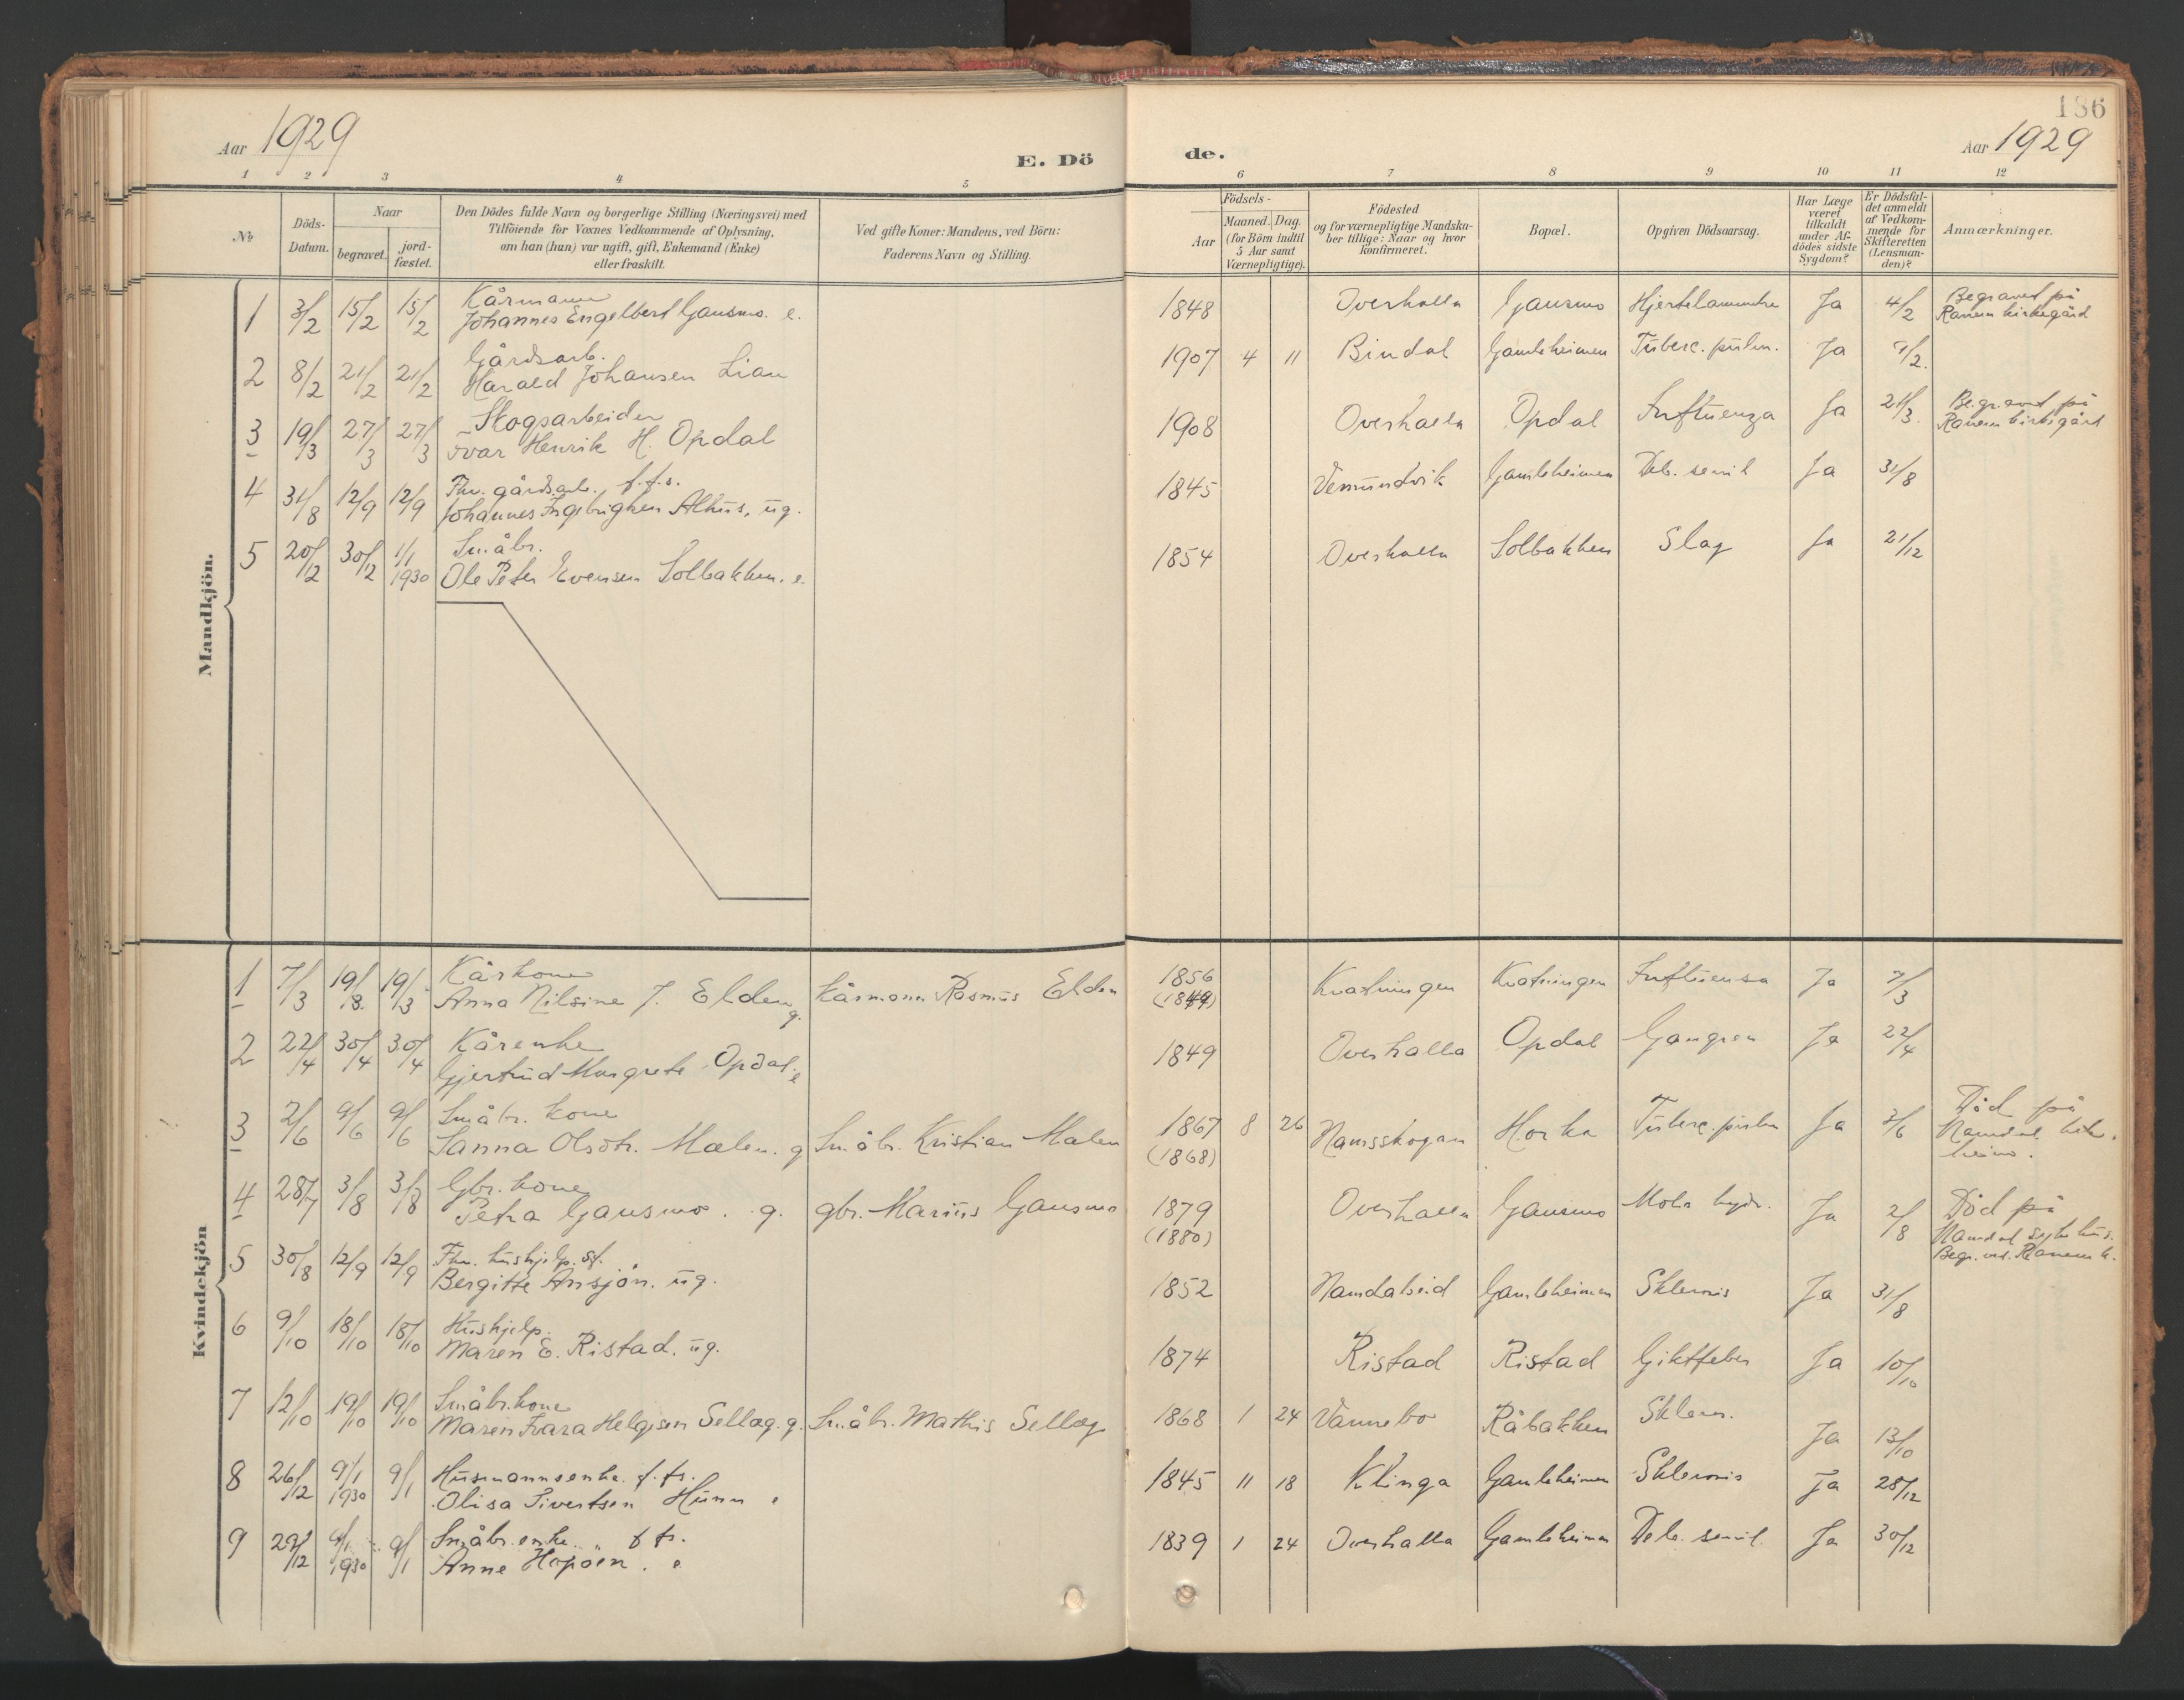 186
Aar 1929
E. Dö
de.
Aar 1929
1 2 3 4 5 6 7 8 9 10 11 12
№
Döds-
Datum.
Naar
begravet.
jord-
fæstet.
Den Dödes fulde Navn og borgerlige Stilling (Næringsvei) med
Tilföiende for Voxnes Vedkommende af Oplysning,
om han (hun) var ugift, gift, Enkemand (Enke)
eller fraskilt.
Ved gifte Koner: Mandens, ved Börn:
Faderens Navn og Stilling.
Födsels-
Aar
Maaned. Dag.
(for Börn indtil
5 Aar samt
Værnepligtige).
Födested
og for værnepligtige Mandska-
ber tillige: Naar og hvor
konfirmeret.
Bopæl.
Opgiven Dödsaarsag.
Har Læge
været
tilkaldt
under Af-
dödes sidste
Sygdom?
Er Dödsfal-
det anmeldt
af Vedkom-
mende for
Skifteretten
(Lensman-
den)?
Anmærkninger.
Mandkjön.
1 3/2 15/2 15/2 Kårmann
Johannes Engelbert Gausmo. e. 1848 Overhalla Gausmo Hjertelammelse Ja 4/2 Begravet på
Ranem kirkegård
2 8/2 21/2 21/2 Gårdsarb.
Harald Johansen Lian 1907 4 11 Bindal Gamleheimen Tuberc. pulm. Ja 9/2.
3 19/3 27/3 27/3 Skogsarbeider
Ivar Henrik H. Opdal 1908 Overhalla Opdal Influenza Ja 21/3. Begravet på
Ranem kirkegård
4 31/8 12/9 12/9 Fhv. gårdsarb. f.f.s.
Johannes Ingebrigtsen Alhus, ug. 1845 Vemundvik Gamleheimen Deb. senil Ja 31/8
5 20/12 30/12 1/1 1930 Småbr.
Ole Peter Evensen Solbakken. e. 1854 Overhalla Solbakken Slag Ja 21/12
Kvindekjön
1 7/3 19/3 19/3 Kårkone
Anna Nilsine J. Elden g. Kårmann Rasmus Elden 1856
(1849) Kvatningen Kvatningen Influensa Ja 7/3
2 22/4 30/4 30/4 Kårenke
Gjertrud Margrete Opdal. e 1849 Overhalla Opdal Gangren Ja 22/4
3 2/6 9/6 9/6 Småbr. kone
Sanna Olsdtr. Mælen. g Småbr. Kristian Mælen 1867 8 26
(1868) Namsskogan Horka Tuberc. pulm Ja 3/6 Död på
Namdal
heim.
4 28/7 3/8 3/8 Gbr. kone
Petra Gausmo. g. gbr. Marius Gausmo 1879
(1880) Overhalla Gausmo Mola hyd. Ja 2/8 Död på
Namdal sykehus.
Begr. ved. Ranem k.
5 30/8 12/9 12/9 Fhv. hushjelp. sf.
Bergitte Ansjön. ug. 1852 Namdalseid Gamleheimen Sklerosis Ja 31/8
6 9/10 18/10 18/10 Hushjelp.
Maren E. Ristad. ug. 1874 Ristad Ristad Giktfeber Ja 10/10
7 12/10 19/10 19/10 Småbr. kone
Maren Ivara Helgesen Sellæg. g. Småbr. Mathis Sellæg 1868 1 24 Vannebo Råbakken Skleros. Ja 13/10
8 26/12 9/1 1930 9/1 Husmannsenke. f.fs.
Olisa Sivertsen Hunn e 1845 11 18 Klinga Gamleheimen Sklerosis Ja 28/12
9 29/12 9/1 1930 9/1 Småbr. enke. " f fs.
Anne Hopöen. e 1839 1 24 Overhalla Gamleheimen Deb. senil. Ja 30/12